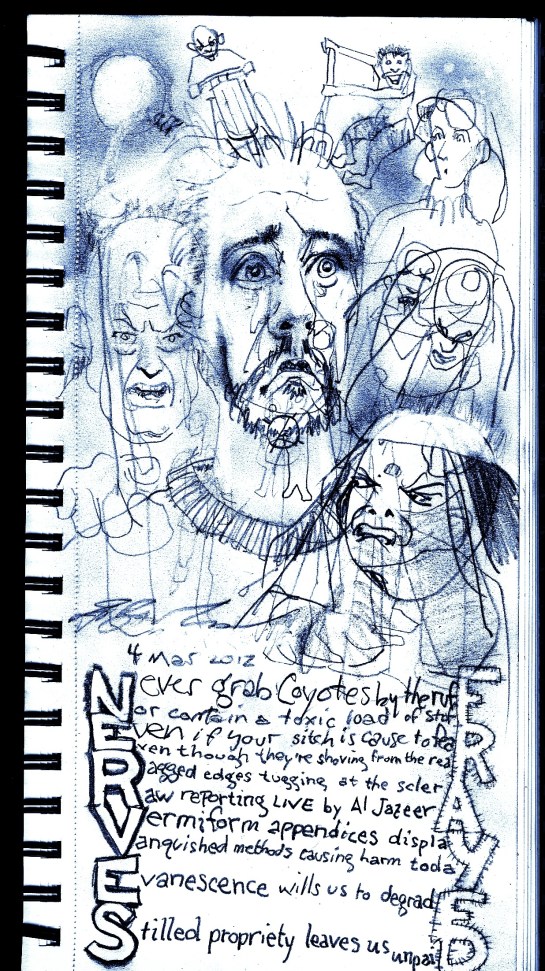 4 Mar 2012
Never grab Coyotes by the ruff
Nor contain a toxic load of stuff
Even if your sitch is cause to fear
Even though they're shoving from the rear
Ragged edges tugging at the sclera
Raw reporting LIVE by Al Jazeera
Vermiform appendices display
Vanquished methods causing harm today
Evanescence wills us to degrade
Stilled propriety leaves us unpaid
NERVES
FRAYED